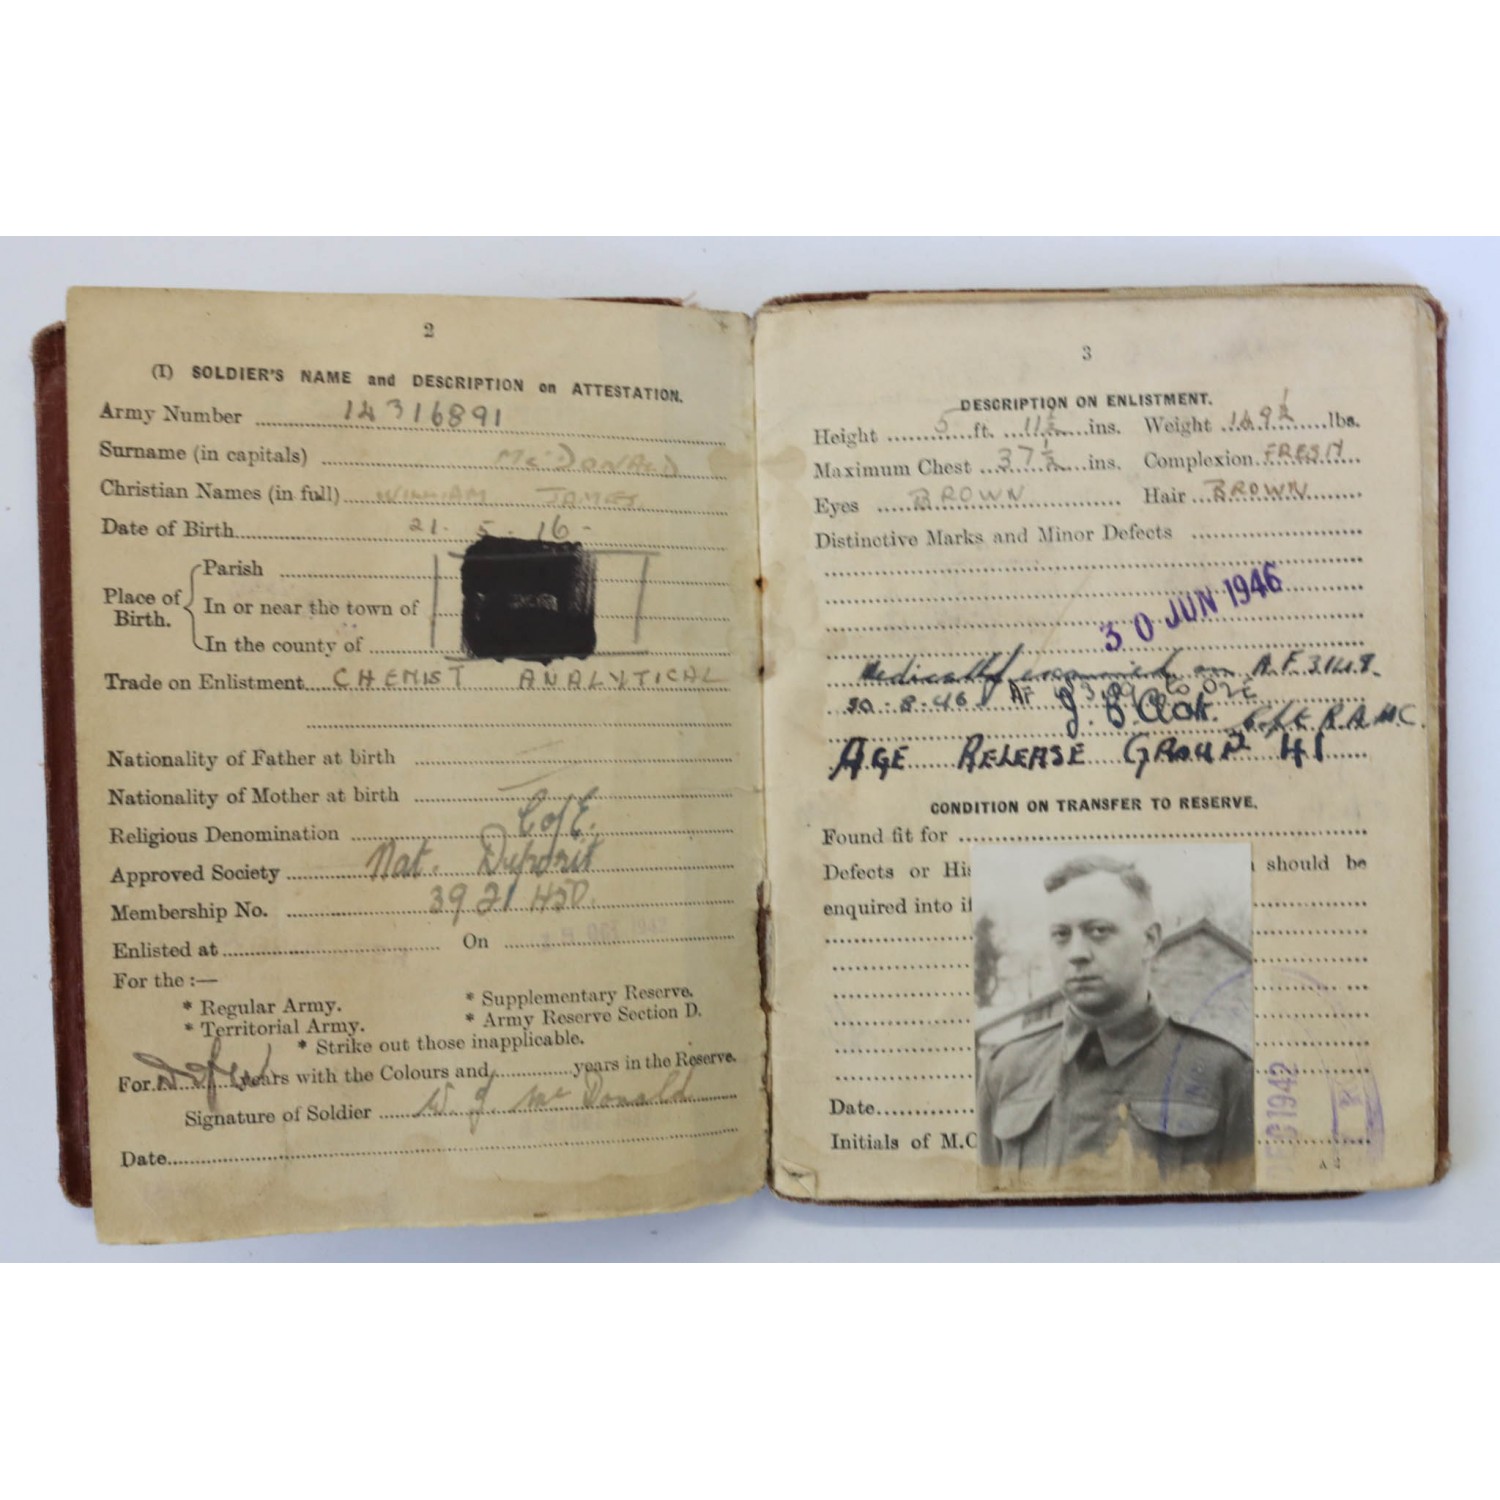 2
(I) SOLDIER'S NAME and DESCRIPTION on ATTESTATION.
Army Number 14316891
Surname (in capitals) McDONALD
Christian Names (in full) WILLIAM JAMES
Date of Birth 21. 5. 16.
Place of Birth.
Parish
In or near the town of
In the county of
Trade on Enlistment CHEMIST ANALYTICAL
Nationality of Father at birth
Nationality of Mother at birth
Religious Denomination C of E.
Approved Society Nat. Deposit
Membership No. 3921 450.
Enlisted at On OCT 1942
For the :—
* Regular Army. * Supplementary Reserve.
* Territorial Army. * Army Reserve Section D.
* Strike out those inapplicable.
For years with the Colours and years in the Reserve.
Signature of Soldier W. J. McDonald
Date
3
DESCRIPTION ON ENLISTMENT.
Height 5 ft. 11½ ins. Weight 149½ lbs.
Maximum Chest 37½ ins. Complexion FRESH
Eyes BROWN Hair BROWN
Distinctive Marks and Minor Defects
30 JUN 1946
Medically examined on A.F. 3148.
AF
J. S. Clark. R.A.M.C.
AGE RELEASE GROUP 41
CONDITION ON TRANSFER TO RESERVE.
Found fit for
Defects or should be
enquired into
Date
Initials of M.
1942